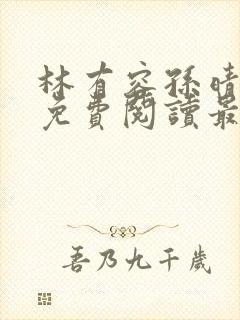 林有容孫晴
免費閱讀最
吾乃九千歲